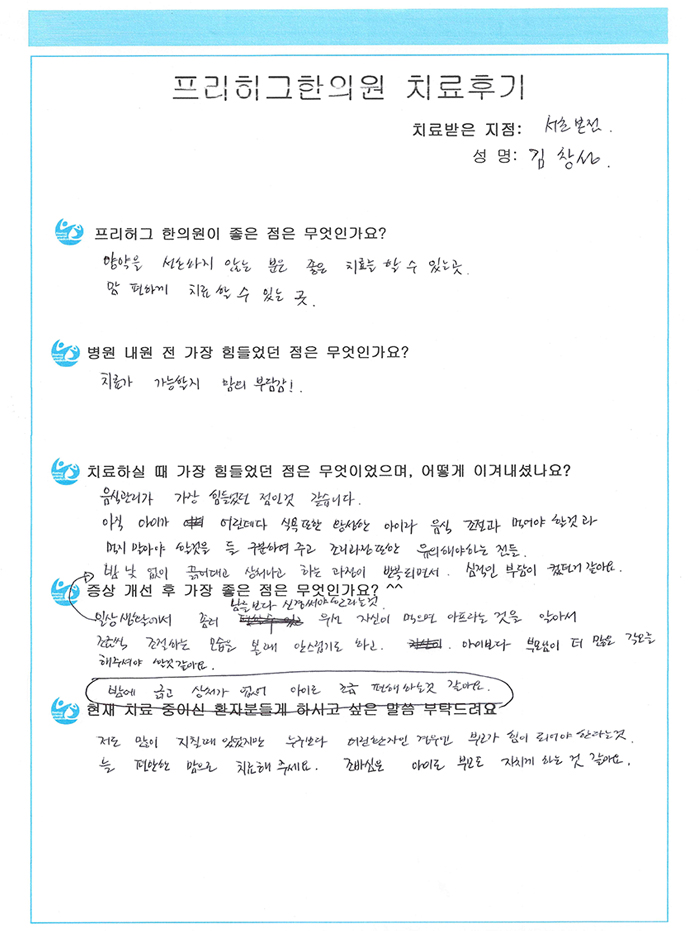 프리허그한의원 치료후기
치료받은 지점: 서초본점.
성 명: 김창상.
프리허그 한의원이 좋은 점은 무엇인가요?
양약을 선호하지 않는 분은 좋은 치료를 할 수 있는곳.
맘 편하게 치료 할 수 있는 곳.
병원 내원 전 가장 힘들었던 점은 무엇인가요?
치료가 가능할지 맘의 부담감!.
치료하실 때 가장 힘들었던 점은 무엇이었으며, 어떻게 이겨내셨나요?
음식관리가 가장 힘들었던 점인것 같습니다.
아직 아이가 어린데다 식욕 또한 왕성한 아이라 음식 조절과 먹어야 할것과
먹지 말아야 할것을 등 구분하여 주고 조리과정 또한 유의해야하는 점등.
밤 낮 없이 긁어대고 상처나고 하는 과정이 반복되면서. 심적인 부담이 컸던거 같아요.
증상 개선 후 가장 좋은 점은 무엇인가요? ^^
남들보다 신경써야 한다는것.
일상생활에서 좀더 자신이 먹으면 아프다는 것을 알아서
조금씩 조절하는 모습을 볼때 안스럽기도 하고. 아이보다 부모님이 더 많은 각오를
해주셔야 할것 같아요.
밤에 긁고 상처가 없어 아이도 조금 편해 하는것 같아요.
현재 치료 중이신 환자분들게 하시고 싶은 말씀 부탁드려요
저도 많이 지칠때 있었지만 누구보다 어린환자인 경우엔 부모가 힘이 되어야 한다는것.
늘 편안한 맘으로 치료해 주세요. 조바심은 아이도 부모도 지치게 하는 것 같아요.